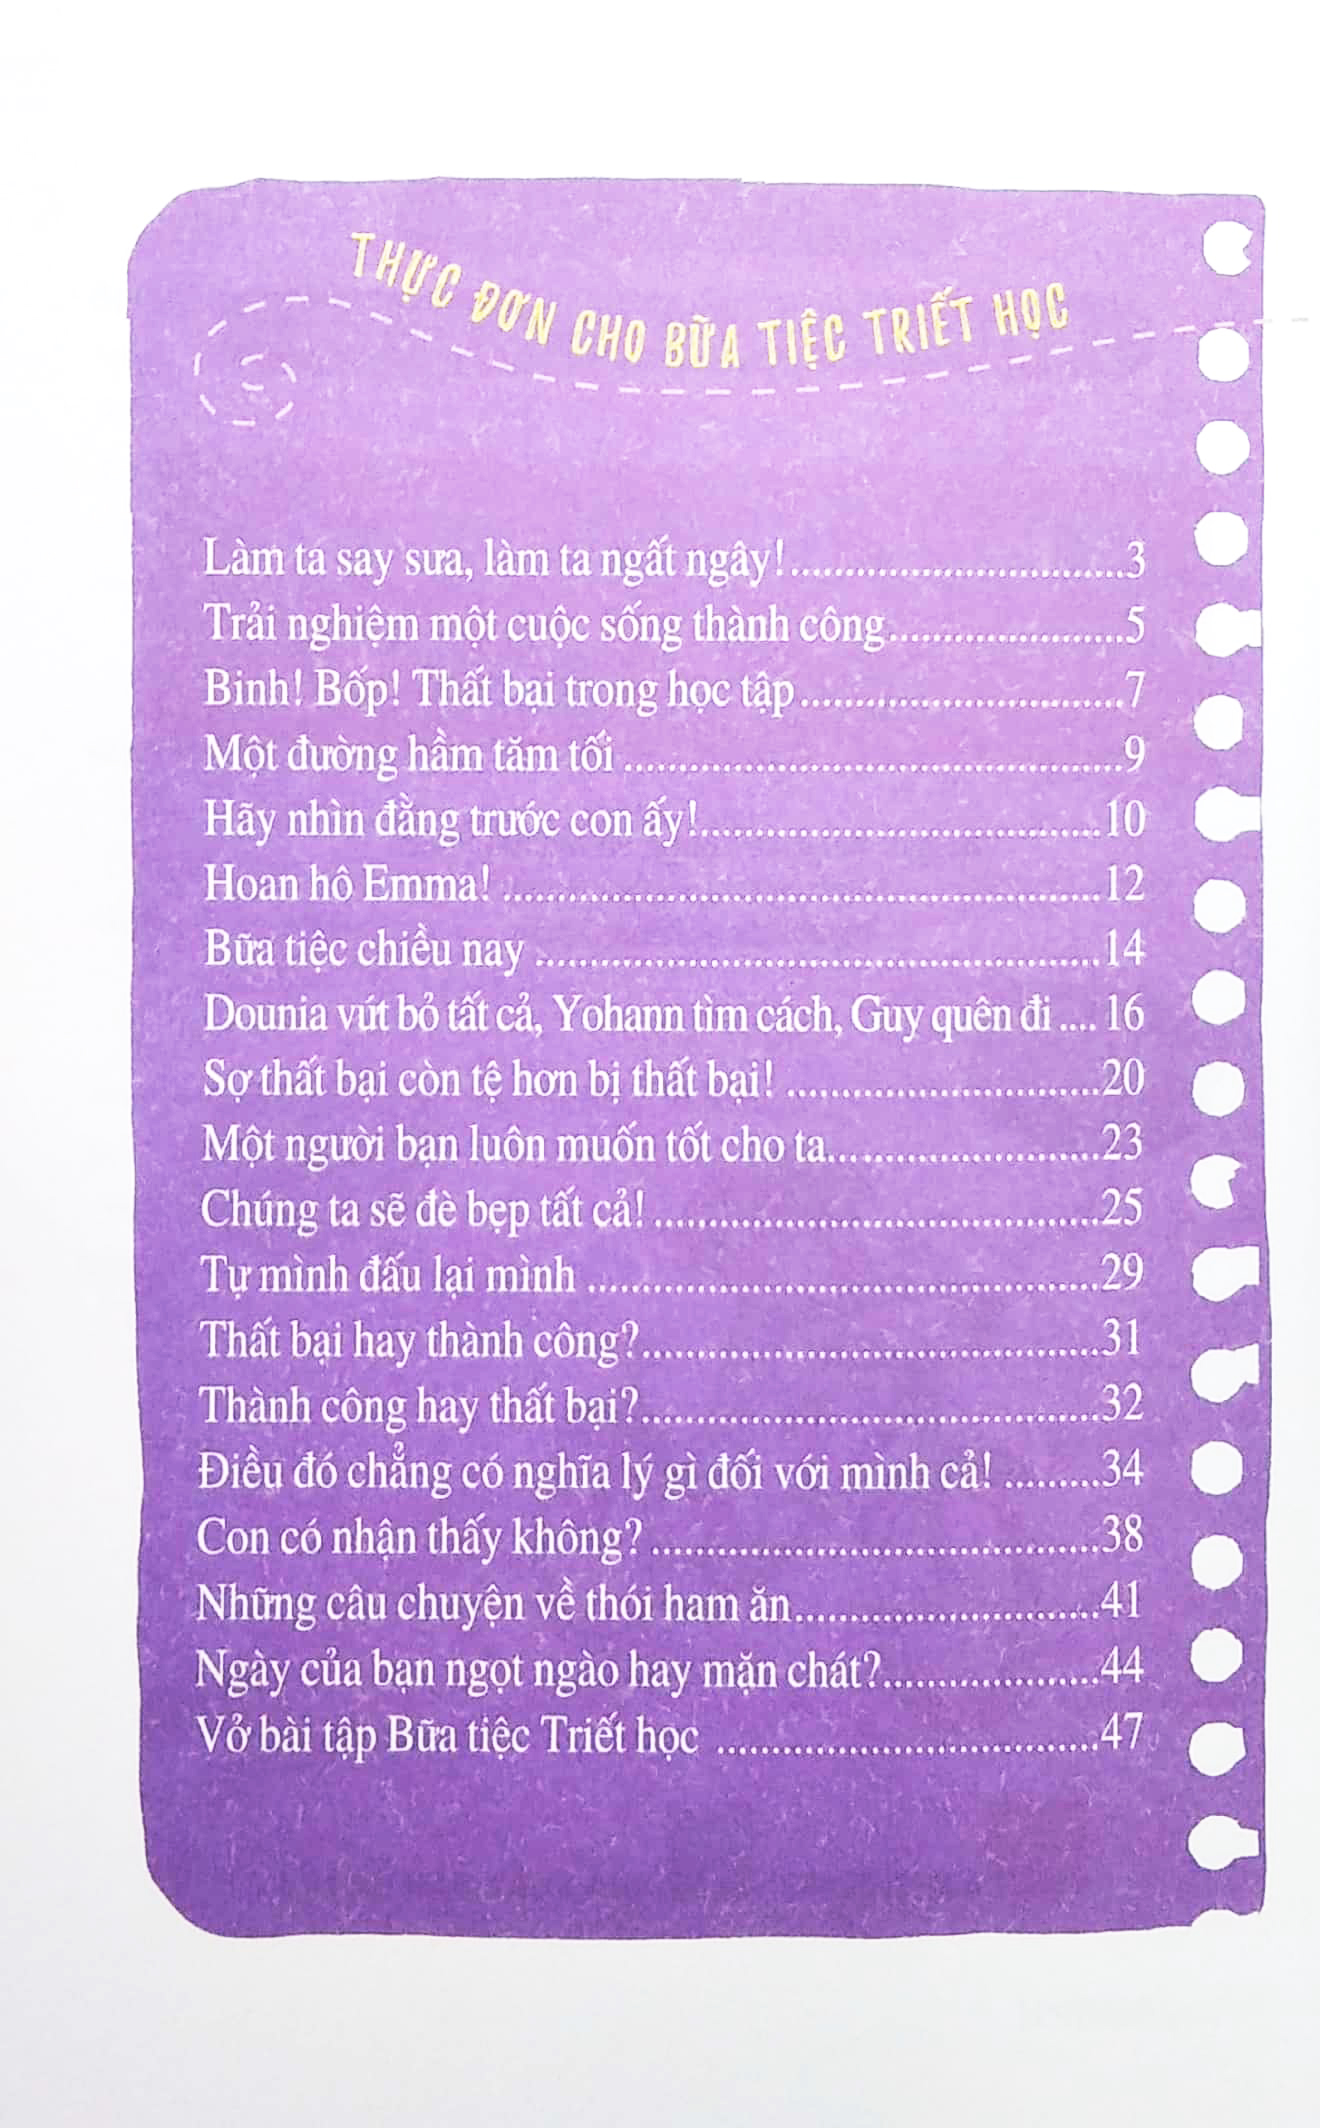 THỰC ĐƠN CHO BỮA TIỆC TRIẾT HỌC
Làm ta say sưa, làm ta ngất ngây!..............................3
Trải nghiệm một cuộc sống thành công.....................5
Binh! Bốp! Thất bại trong học tập.............................7
Một đường hầm tăm tối .............................................9
Hãy nhìn đằng trước con ấy!....................................10
Hoan hô Emma! ......................................................12
Bữa tiệc chiều nay ...................................................14
Dounia vứt bỏ tất cả, Yohann tìm cách, Guy quên đi .... 16
Sợ thất bại còn tệ hơn bị thất bại! ............................20
Một người bạn luôn muốn tốt cho ta........................23
Chúng ta sẽ đè bẹp tất cả!........................................25
Tự mình đấu lại mình ..............................................29
Thất bại hay thành công?.........................................31
Thành công hay thất bại?.........................................32
Điều đó chẳng có nghĩa lý gì đối với mình cả! .........34
Con có nhận thấy không? ........................................38
Những câu chuyện về thói ham ăn...........................41
Ngày của bạn ngọt ngào hay mặn chát?...................44
Vở bài tập Bữa tiệc Triết học ..................................47